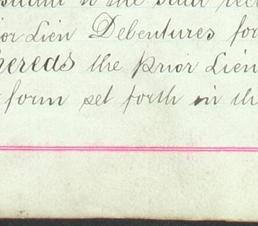 the said
or Lien Debentures for
hereas the prior Lien
form set forth in th